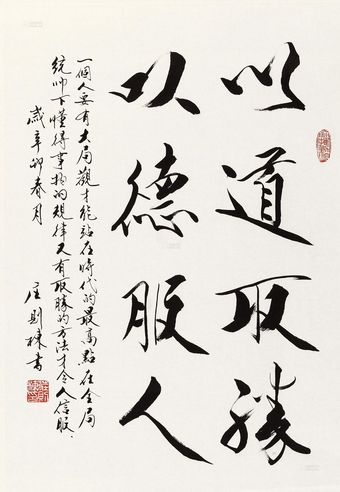 以道取勝
以德服人
一個人要有大局觀才能站在時代的最高點在全局
統帅下懂得事物的規律又有取勝的方法才令人信服
歲辛卯春月
庄則棟書